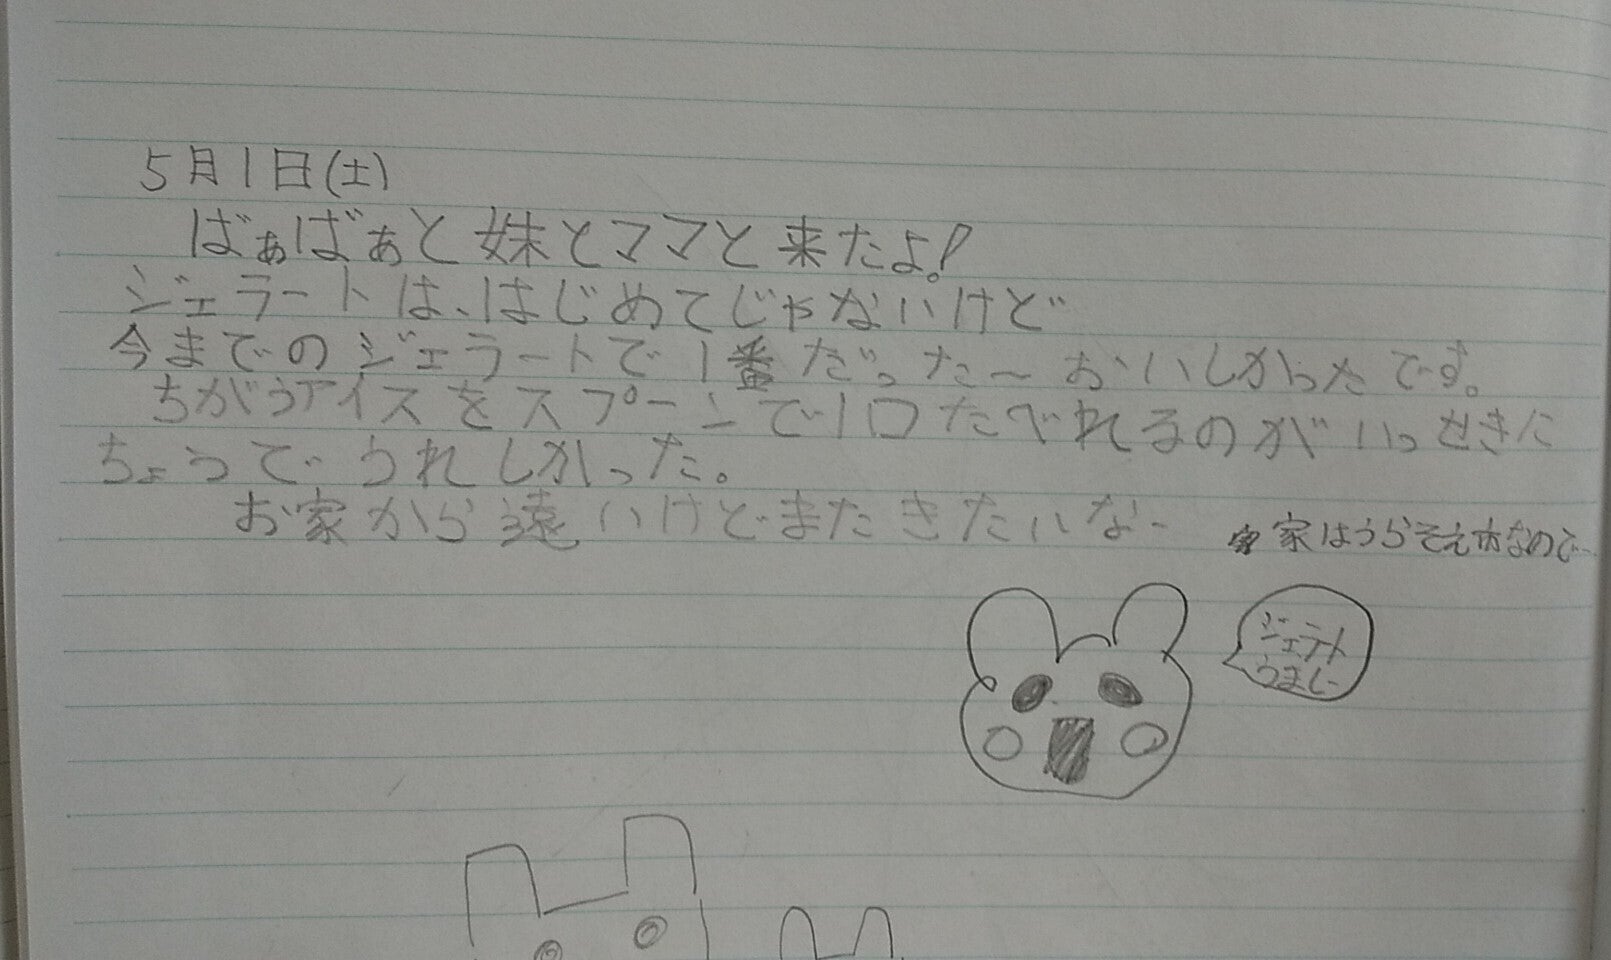 5月1日(土)
ばぁばぁと妹とママと来たよ!
ジェラートは、はじめてじゃないけど
今までのジェラートで1番だった〜おいしかったです。
ちがうアイスをスプーンで1口たべれるのがいっせきに
ちょうで うれしかった。
お家から遠いけどまたきたいなー
家はうらそえ市なので…
ジェラート
うまし